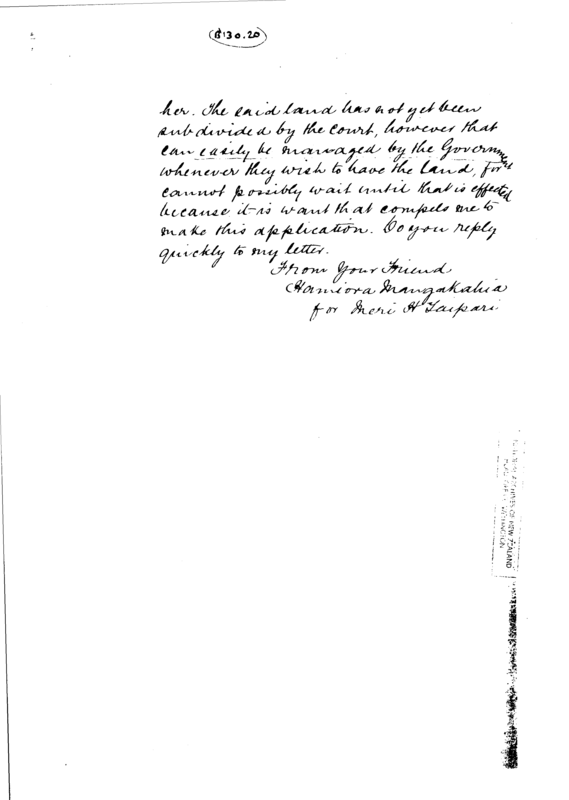 B130.20
her. The said land has not yet been
subdivided by the court, however that
can easily be managed by the Government
whenever they wish to have the land, for
cannot possibly wait until that is effected
because it is want that compels me to
make this application. Do you reply
quickly to my letter.
From Your Friend
Hamiora Mangakahia
for Meri H Taipari
ARCHIVES OF NEW ZEALAND
WELLINGTON